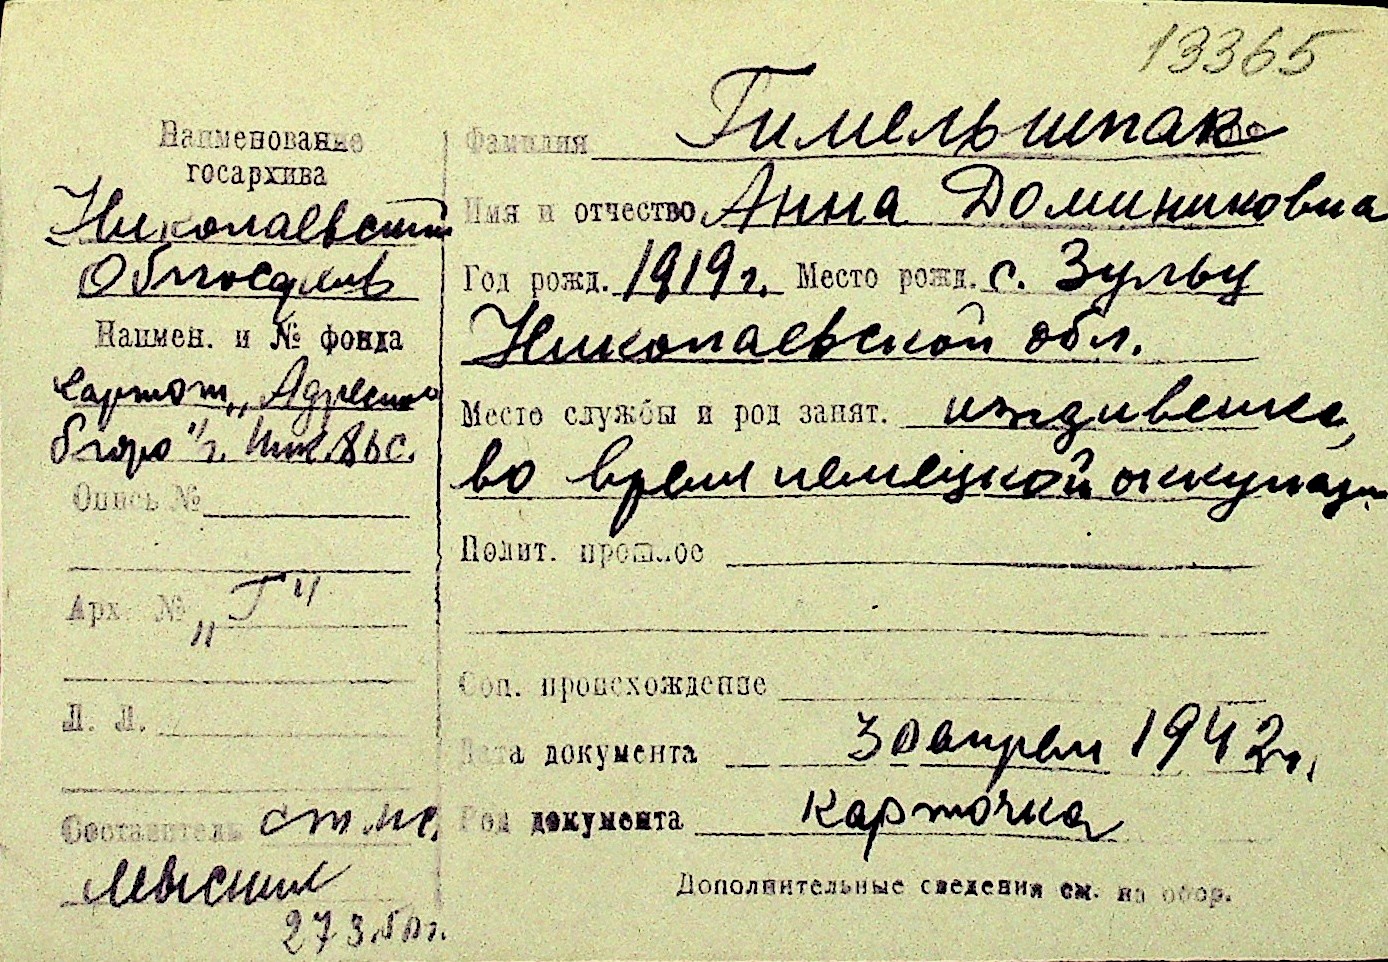 13365
Наименование
госархива
Николаевский
Облгосархив
Наимен. и № фонда
картот. „Адресное
бюро" г.
Опись №
Арх. № „Г"
Л. Л.
Составитель ст. лт.
27 3.50г.
Фамилия Гимельшпак
Имя и отчество Анна Доминиковна
Год рожд. 1919г. Место рожд. с. Зульцы
Николаевской обл.
Место службы и род занят. иждивенка,
во время немецкой оккупации
Полит. прошлое
Соц. происхождение
Дата документа 30 апреля 1942г.
Род документа карточка
Дополнительные сведения см. на обор.